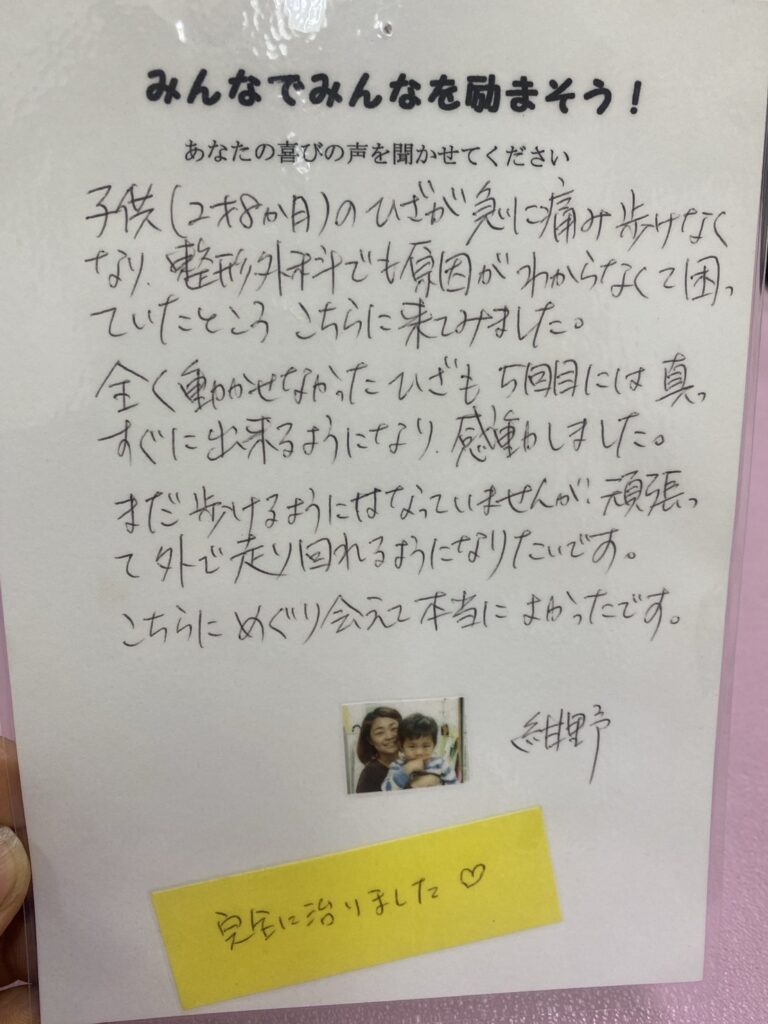 みんなでみんなを励まそう！
あなたの喜びの声を聞かせてください
子供(2才8か月)のひざが急に痛み歩けなく
なり、整形外科でも原因がわからなくて困っ
ていたところ こちらに来てみました。
全く動かせなかったひざも 5回目には 真っ
すぐに出来るようになり、感動しました。
まだ歩けるようにはなっていませんが、頑張っ
て外で走り回れるようになりたいです。
こちらに めぐり会えて本当に よかったです。
紺野
完全に治りました♡